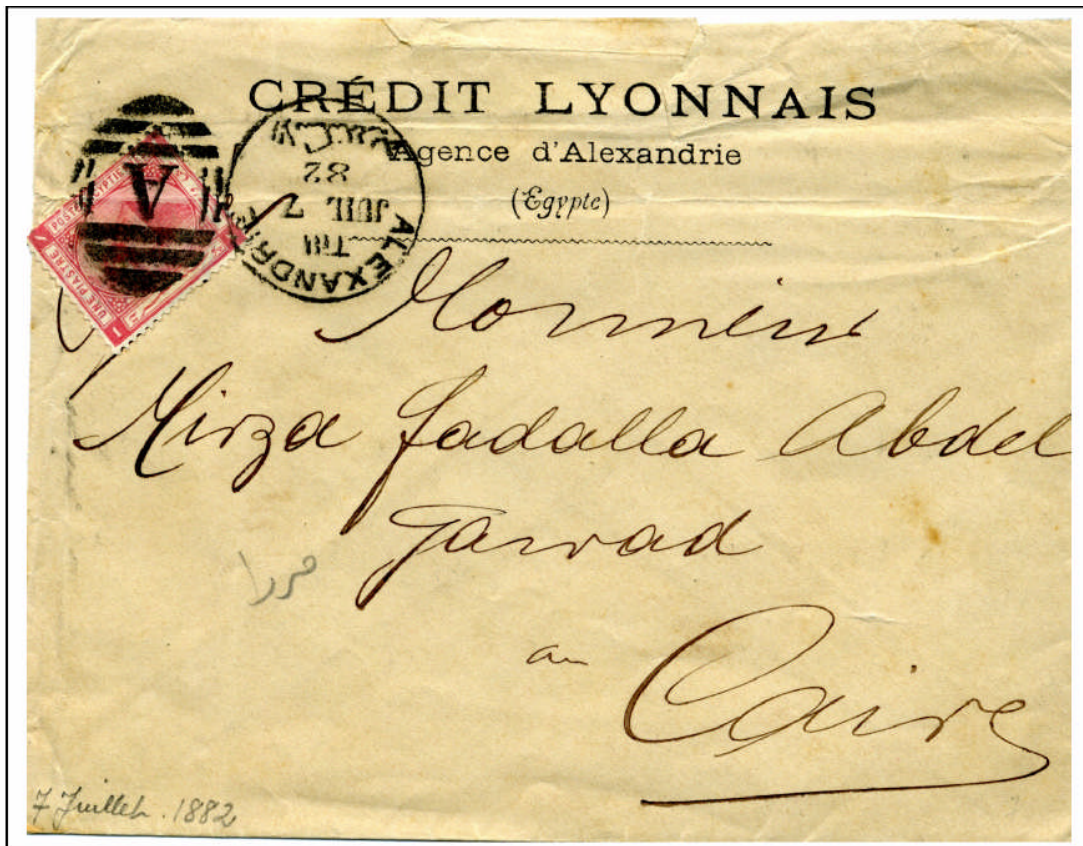 CRÉDIT LYONNAIS
Agence d'Alexandrie
(Egypte)
ALEXANDRIE
T III
7 JUIL
82
A
UNE PIASTRE
1
Monsieur
Mirza Fadalla Abdel
Gawad
au
Caire
7 Juillet. 1882